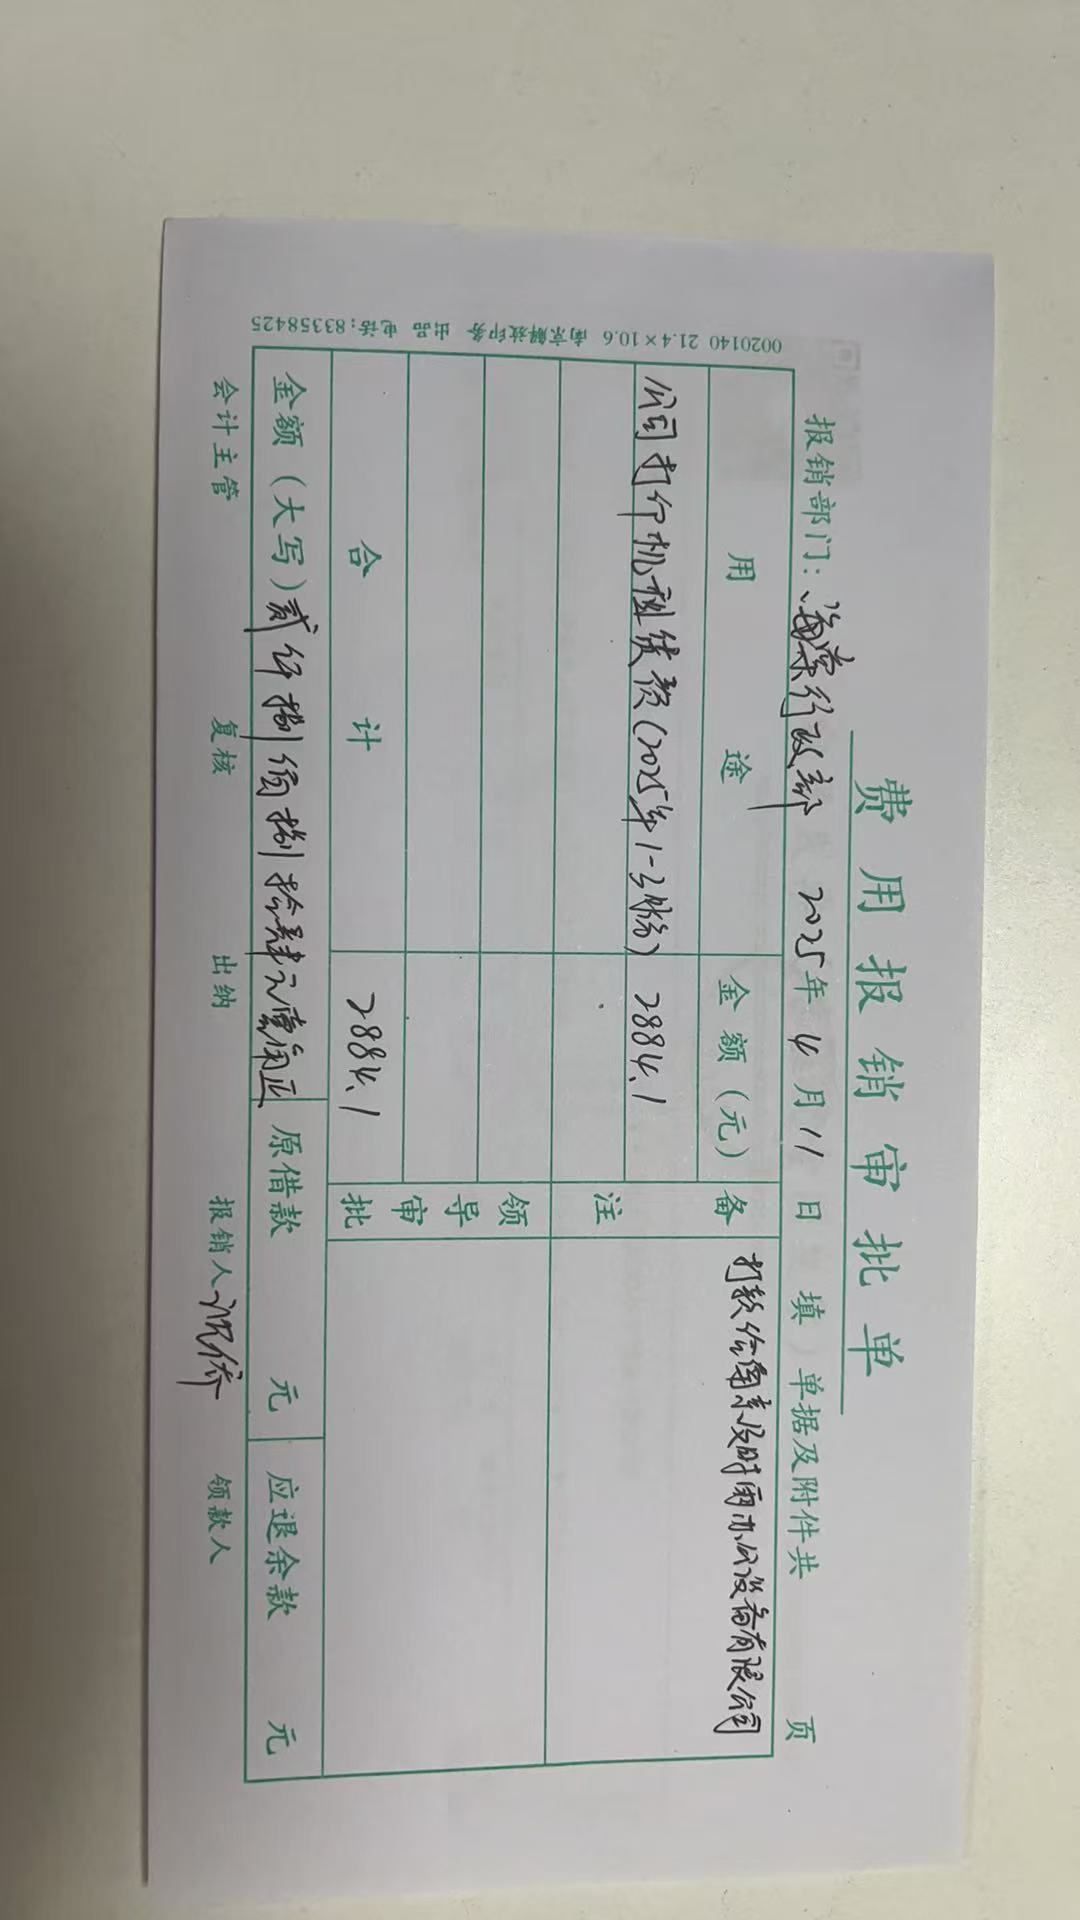 费用报销审批单
报销部门：海棠行政部 2025年4月11日 填 单据及附件共 页
用途 金额（元） 备注 打款给南京及时雨办公设备有限公司
公司打印机租赁费(2025年1-3月份) 2884.1
领导审批
合计 2884.1
金额（大写）贰仟捌佰捌拾肆元壹角正 原借款 元 应退余款 元
会计主管 复核 出纳 报销人 领款人
0020140 21.4×10.6 南京解放印务 出品 电话:83358425